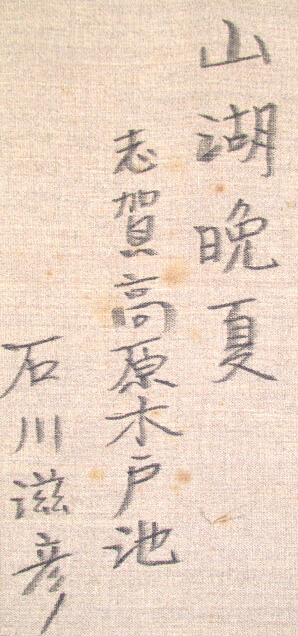 山湖晩夏
志賀高原木戸池
石川滋彦